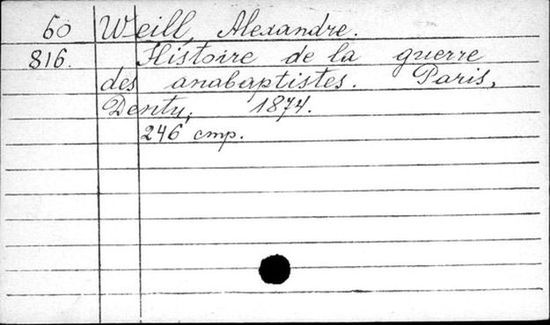 50 Weill, Alexandre.
816. Histoire de la guerre
des anabaptistes. Paris,
Dentu, 1874.
246 стр.